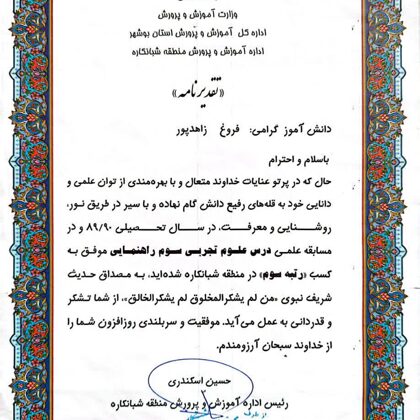 وزارت آموزش و پرورش
اداره کل آموزش و پرورش استان بوشهر
اداره آموزش و پرورش منطقه شبانکاره
«تقدیر نامه»
دانش آموز گرامی: فروغ زاهدپور
باسلام و احترام
حال که در پرتو عنایات خداوند متعال و با بهره‌مندی از توان علمی و
دانایی خود به قله‌های رفیع دانش گام نهاده و با سیر در طریق نور،
روشنایی و معرفت، در سال تحصیلی ۸۹/۹۰ و در
مسابقه علمی درس علوم تجربی سوم راهنمایی موفق به
کسب «رتبه سوم» در منطقه شبانکاره شده‌اید، به مصداق حدیث
شریف نبوی «من لم یشکرالمخلوق لم یشکرالخالق»، از شما تشکر
و قدردانی به عمل می‌آید. موفقیت و سربلندی روزافزون شما را
از خداوند سبحان آرزومندم.
حسین اسکندری
رئیس اداره آموزش و پرورش منطقه شبانکاره
از طرف